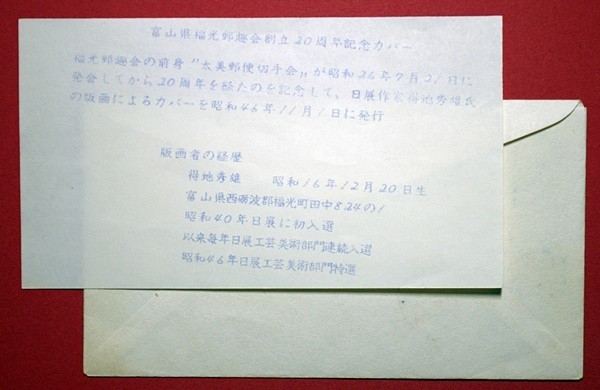 富山県福光郵趣会創立20周年記念カバー
福光郵趣会の前身"太美郵便切手会"が昭和26年7月21日に
発会してから20周年を経たのを記念して、日展作家得地秀雄氏
の版画によるカバーを昭和46年11月1日に発行
版画者の経歴
得地秀雄 昭和16年12月20日生
富山県西砺波郡福光町田中824の1
昭和40年日展に初入選
以来毎年日展工芸美術部門連続入選
昭和46年日展工芸美術部門特選